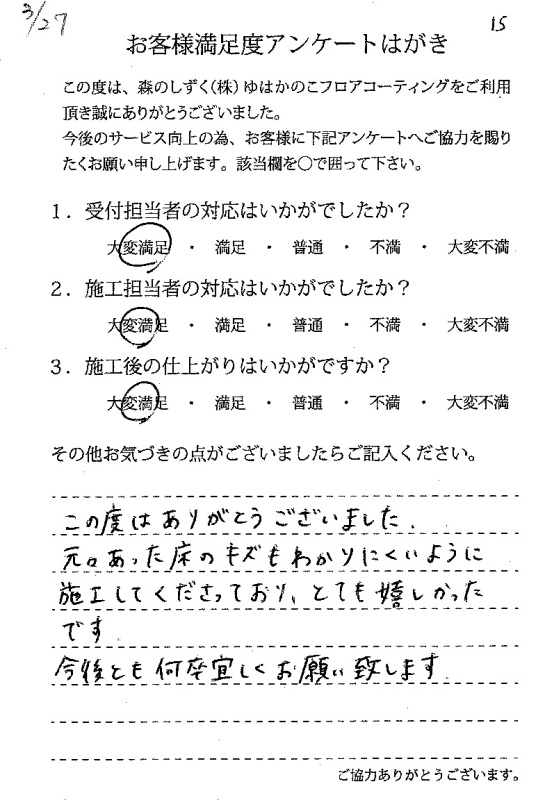 3/27
15
お客様満足度アンケートはがき
この度は、森のしずく(株)ゆはかのこフロアコーティングをご利用
頂き誠にありがとうございました。
今後のサービス向上の為、お客様に下記アンケートへご協力を賜り
たくお願い申し上げます。該当欄を○で囲って下さい。
1．受付担当者の対応はいかがでしたか？
大変満足 ・ 満足 ・ 普通 ・ 不満 ・ 大変不満
2．施工担当者の対応はいかがでしたか？
大変満足 ・ 満足 ・ 普通 ・ 不満 ・ 大変不満
3．施工後の仕上がりはいかがですか？
大変満足 ・ 満足 ・ 普通 ・ 不満 ・ 大変不満
その他お気づきの点がございましたらご記入ください。
この度はありがとうございました.
元々あった床のキズもわかりにくいように
施工してくださっており、とても嬉しかった
です.
今後とも何卒宜しくお願い致します.
ご協力ありがとうございます。